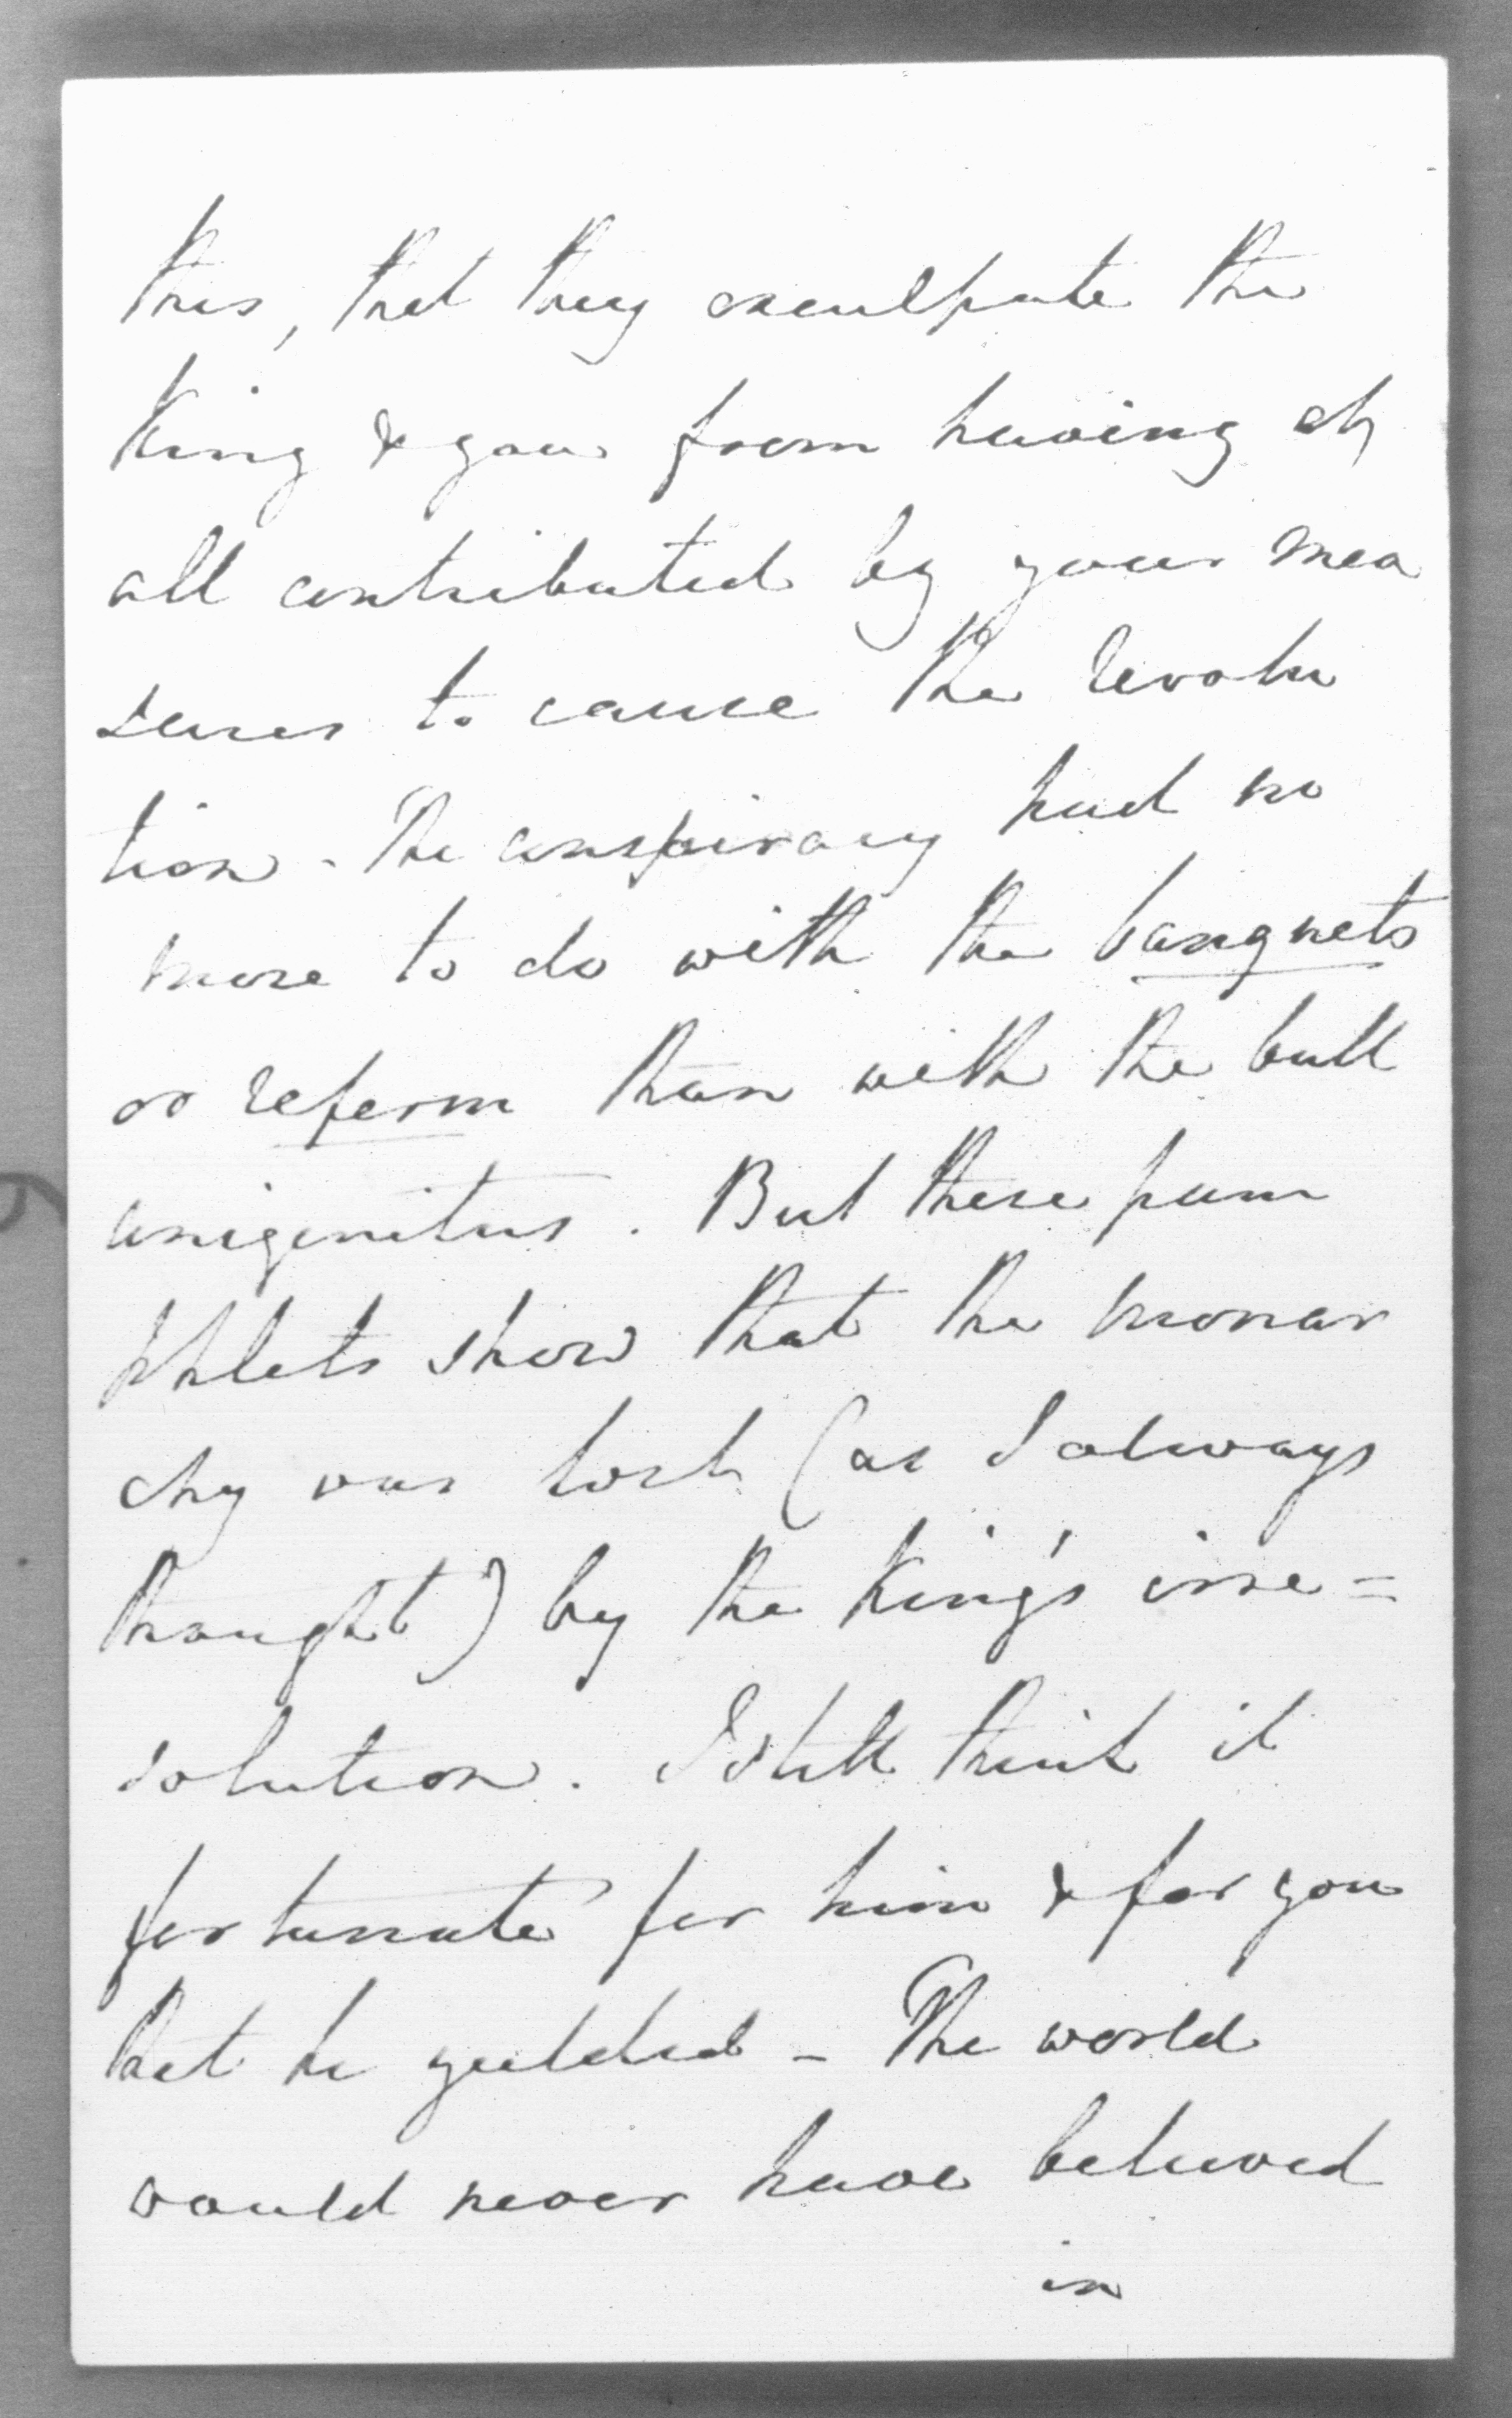 this, that they exculpate the
King & you from having at
all contributed by your mea
sures to cause the revolu
tion - The conspiracy had no
more to do with the banquets
or reform than with the bull
unigenitus. But these pam
phlets show that the monar
chy was lost (as I always
thought) by the King's irre=
solution. I still think it
fortunate for him & for you
that he yielded - The world
would never have believed
in